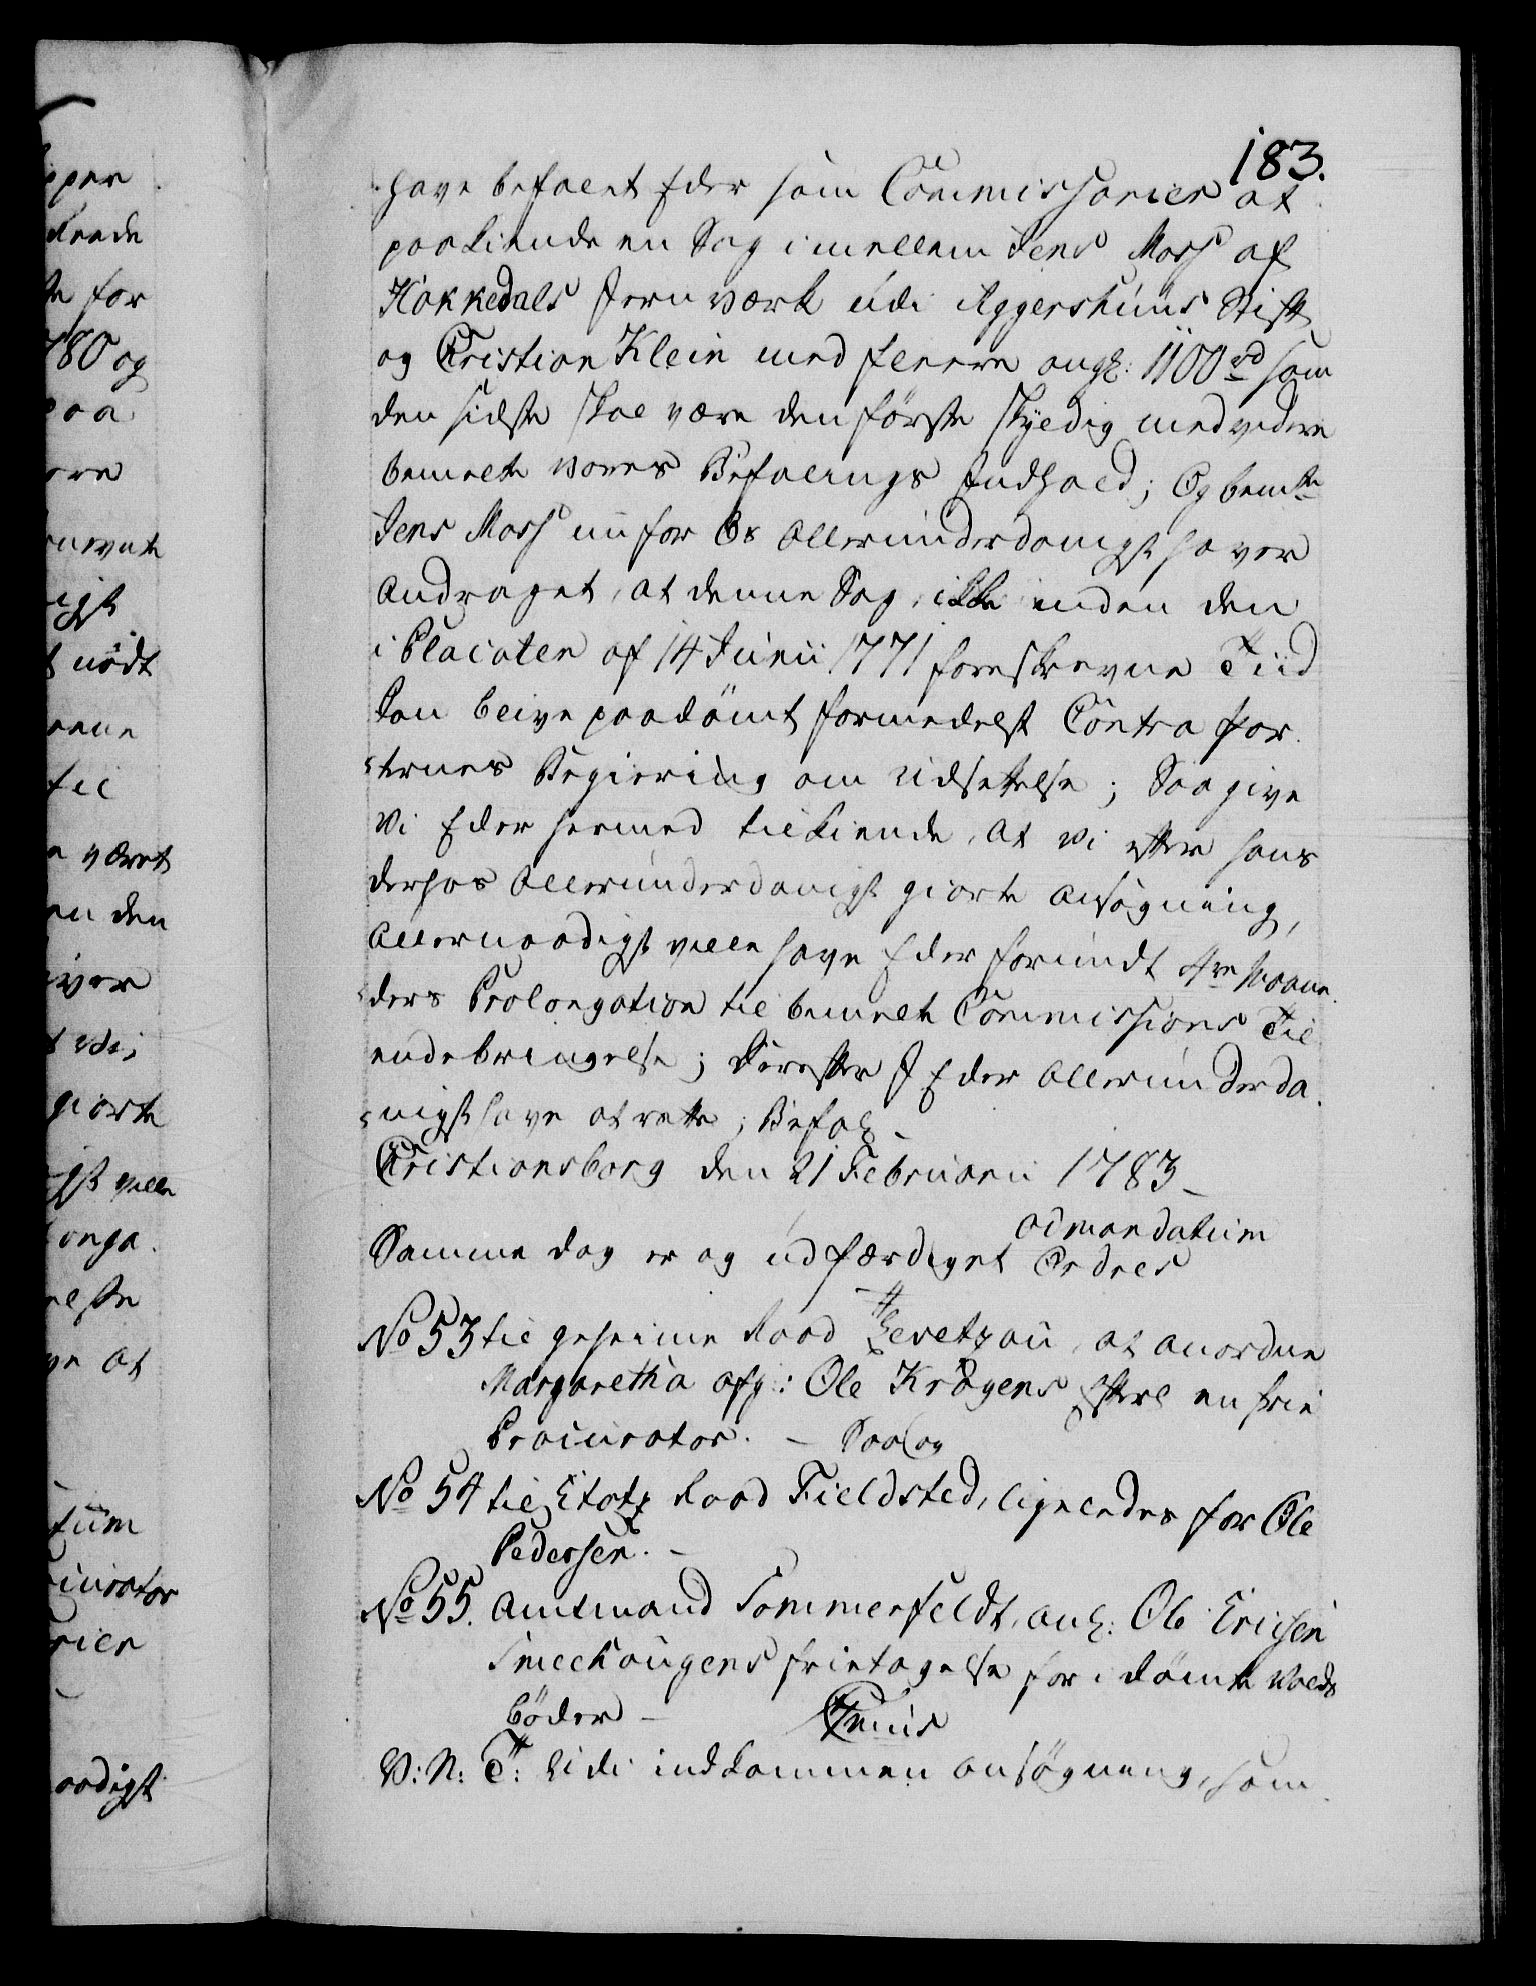 183.
have befalet Eder som Commissarier at
paakiende en Sag imellem Jens Moss af
Hakkedals Jernværk udi Aggershuus Stift
og Christian Klein med fleere ang: 1100 rd som
den sidste skal være den første skyldig med videre
bemelte vores Befalings Indhold; Og bemte
Jens Moss nu for Os allerunderdanigst haver
andraget, at denne Sag ikke inden den
i Placaten af 14 Junii 1771 foreskrevne Tiid
kan blive paadömt formedelst Contra Par-
ternes Begiering om Udsettelse; Saa give
Vi Eder hermed tilkiende, at Vi efter hans
derhos allerunderdanigst giorte Ansøgning,
allernaadigst ville have Eder forundt 4re Maane-
ders Prolongation til bemelte Commissions Til
endebringelse; Derefter I Eder allerunderda-
nigst have at rette; Befal:
Christiansborg den 21 Februarii 1783
Samme dag er og udfærdiget ad mandatum Ordres
No 53 til geheime Raad Levetzau, at anordne
Margaretha afg: Ole Krågens Efterl en frie
Procurator. – Saa og
No 54 til Etatz Raad Fieldsted, ligeledes for Ole
Pedersen. –
No 55. Amtmand Sommerfeldt, ang: Ole Erichsen
Smechaugens fritagelse for idömte Volds
böder –
V: N: T: Udi indkommen ansøgning, som